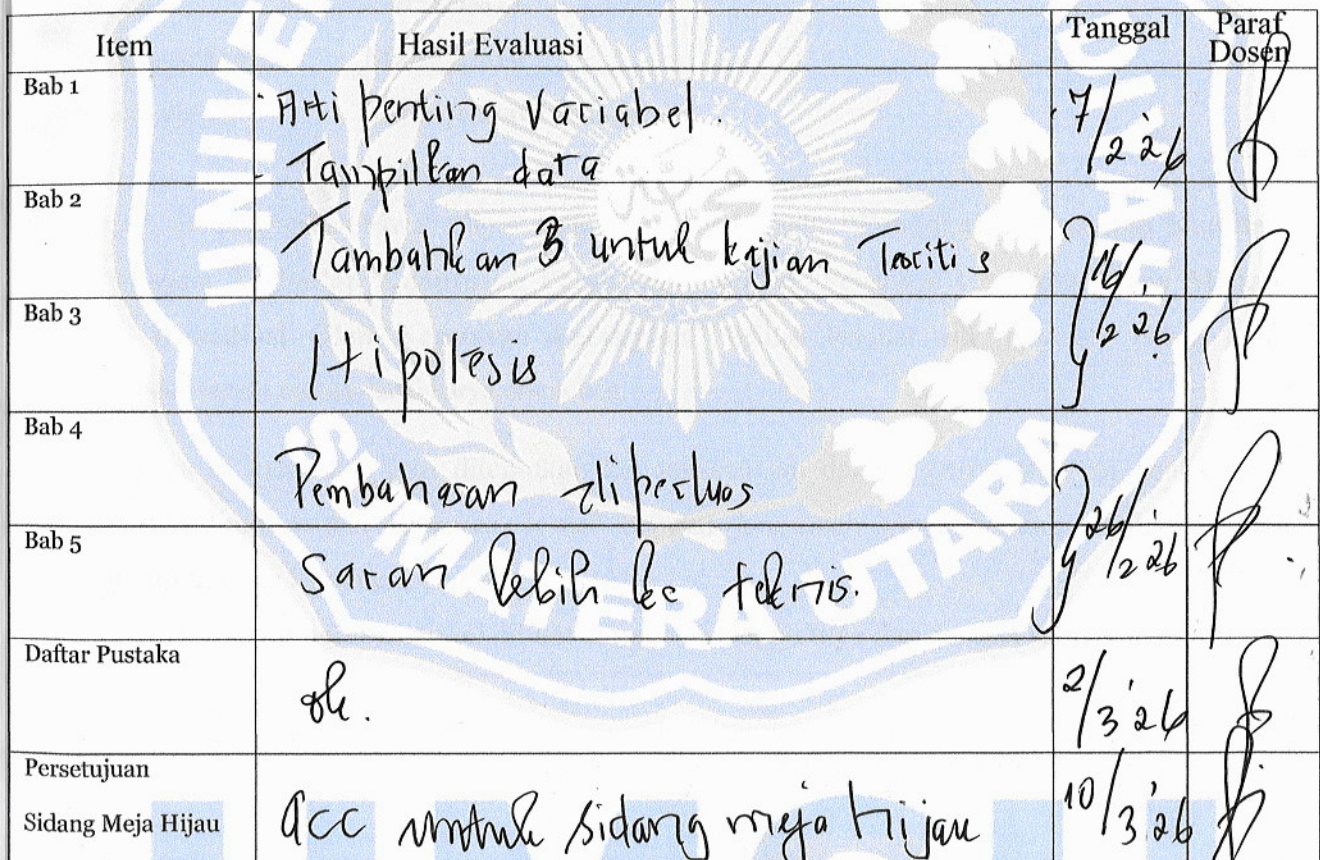 Item Hasil Evaluasi Tanggal Paraf Dosen
Bab 1
- Arti penting Variabel. 7/2 '26
- Tampilkan data
Bab 2
Tambahkan 3 untuk kajian Teoritis 16/2 '26
Bab 3
Hipotesis
Bab 4
Pembahasan diperluas 26/2 '26
Bab 5
Saran lebih ke teknis.
Daftar Pustaka
ok. 2/3 '26
Persetujuan
Sidang Meja Hijau acc untuk sidang meja hijau 10/3 '26
SUMATERA UTARA